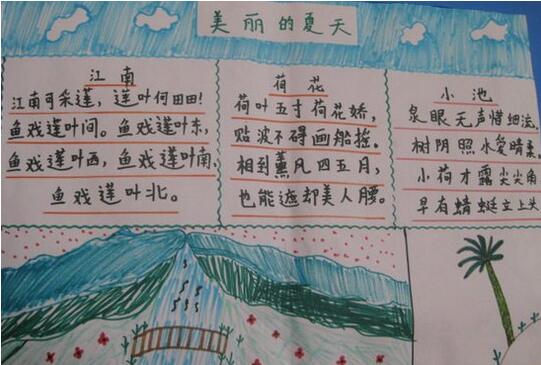 美丽的夏天
江南
江南可采莲，莲叶何田田！
鱼戏莲叶间。鱼戏莲叶东，
鱼戏莲叶西，鱼戏莲叶南，
鱼戏莲叶北。
荷花
荷叶五寸荷花娇，
贴波不碍画船摇。
相到薰风四五月，
也能遮却美人腰。
小池
泉眼无声惜细流，
树阴照水爱晴柔。
小荷才露尖尖角
早有蜻蜓立上头